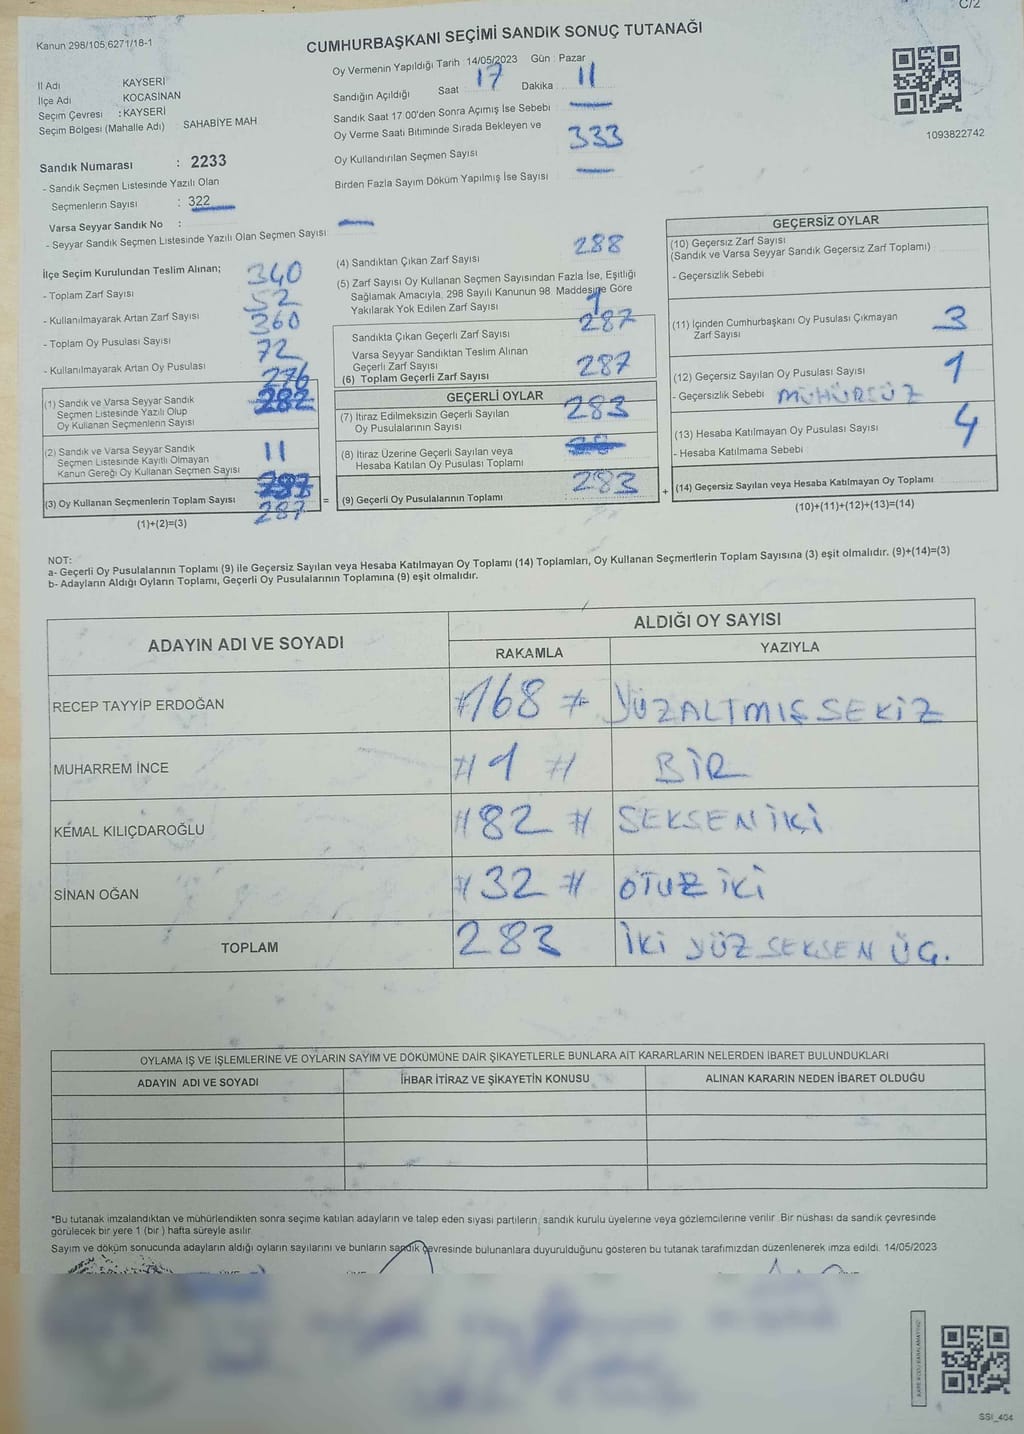 C/2
Kanun 298/105,6271/18-1
CUMHURBAŞKANI SEÇİMİ SANDIK SONUÇ TUTANAĞI
Oy Vermenin Yapıldığı Tarih 14/05/2023 Gün : Pazar
İl Adı KAYSERİ
İlçe Adı KOCASİNAN
Seçim Çevresi : KAYSERİ
Seçim Bölgesi (Mahalle Adı) SAHABİYE MAH
Sandık Numarası : 2233
- Sandık Seçmen Listesinde Yazılı Olan
Seçmenlerin Sayısı : 322
Varsa Seyyar Sandık No :
- Seyyar Sandık Seçmen Listesinde Yazılı Olan Seçmen Sayısı
Sandığın Açıldığı Saat 17 Dakika 11
Sandık Saat 17 00'den Sonra Açımış İse Sebebi
Oy Verme Saati Bitiminde Sırada Bekleyen ve
Oy Kullandırılan Seçmen Sayısı 333
Birden Fazla Sayım Döküm Yapılmış İse Sayısı
1093822742
İlçe Seçim Kurulundan Teslim Alınan;
- Toplam Zarf Sayısı 340
- Kullanılmayarak Artan Zarf Sayısı 52
- Toplam Oy Pusulası Sayısı 360
- Kullanılmayarak Artan Oy Pusulası 72
276
(1) Sandık ve Varsa Seyyar Sandık
Seçmen Listesinde Yazılı Olup
Oy Kullanan Seçmenlerin Sayısı 282
(2) Sandık ve Varsa Seyyar Sandık
Seçmen Listesinde Kayıtlı Olmayan
Kanun Gereği Oy Kullanan Seçmen Sayısı 11
(3) Oy Kullanan Seçmenlerin Toplam Sayısı 287
(1)+(2)=(3)
(4) Sandıktan Çıkan Zarf Sayısı 288
(5) Zarf Sayısı Oy Kullanan Seçmen Sayısından Fazla İse, Eşitliği
Sağlamak Amacıyla, 298 Sayılı Kanunun 98 Maddesine Göre
Yakılarak Yok Edilen Zarf Sayısı 1
Sandıkta Çıkan Geçerli Zarf Sayısı 287
Varsa Seyyar Sandıktan Teslim Alınan
Geçerli Zarf Sayısı
(6) Toplam Geçerli Zarf Sayısı 287
GEÇERLİ OYLAR
(7) İtiraz Edilmeksizin Geçerli Sayılan
Oy Pusulalarının Sayısı 283
(8) İtiraz Üzerine Geçerli Sayılan veya
Hesaba Katılan Oy Pusulası Toplamı
= (9) Geçerli Oy Pusulalarının Toplamı : 283 +
GEÇERSİZ OYLAR
(10) Geçersiz Zarf Sayısı
(Sandık ve Varsa Seyyar Sandık Geçersiz Zarf Toplamı)
- Geçersizlik Sebebi
(11) İçinden Cumhurbaşkanı Oy Pusulası Çıkmayan
Zarf Sayısı 3
(12) Geçersiz Sayılan Oy Pusulası Sayısı 1
- Geçersizlik Sebebi MÜHÜRSÜZ
(13) Hesaba Katılmayan Oy Pusulası Sayısı 4
- Hesaba Katılmama Sebebi
(14) Geçersiz Sayılan veya Hesaba Katılmayan Oy Toplamı
(10)+(11)+(12)+(13)=(14)
NOT:
a- Geçerli Oy Pusulalarının Toplamı (9) ile Geçersiz Sayılan veya Hesaba Katılmayan Oy Toplamı (14) Toplamları, Oy Kullanan Seçmenlerin Toplam Sayısına (3) eşit olmalıdır. (9)+(14)=(3)
b- Adayların Aldığı Oyların Toplamı, Geçerli Oy Pusulalarının Toplamına (9) eşit olmalıdır.
ADAYIN ADI VE SOYADI ALDIĞI OY SAYISI
RAKAMLA YAZIYLA
RECEP TAYYİP ERDOĞAN #168# YÜZALTMIŞSEKİZ
MUHARREM İNCE #1# BİR
KEMAL KILIÇDAROĞLU #82# SEKSENİKİ
SİNAN OĞAN #32# OTUZ İKİ
TOPLAM 283 İKİ YÜZ SEKSEN ÜÇ.
OYLAMA İŞ VE İŞLEMLERİNE VE OYLARIN SAYIM VE DÖKÜMÜNE DAİR ŞİKAYETLERLE BUNLARA AİT KARARLARIN NELERDEN İBARET BULUNDUKLARI
ADAYIN ADI VE SOYADI İHBAR İTİRAZ VE ŞİKAYETİN KONUSU ALINAN KARARIN NEDEN İBARET OLDUĞU
*Bu tutanak imzalandıktan ve mühürlendikten sonra seçime katılan adayların ve talep eden siyasi partilerin, sandık kurulu üyelerine veya gözlemcilerine verilir. Bir nüshası da sandık çevresinde
görülecek bir yere 1 (bir) hafta süreyle asılır.
Sayım ve döküm sonucunda adayların aldığı oyların sayılarını ve bunların sandık çevresinde bulunanlara duyurulduğunu gösteren bu tutanak tarafımızdan düzenlenerek imza edildi. 14/05/2023
SSI_404